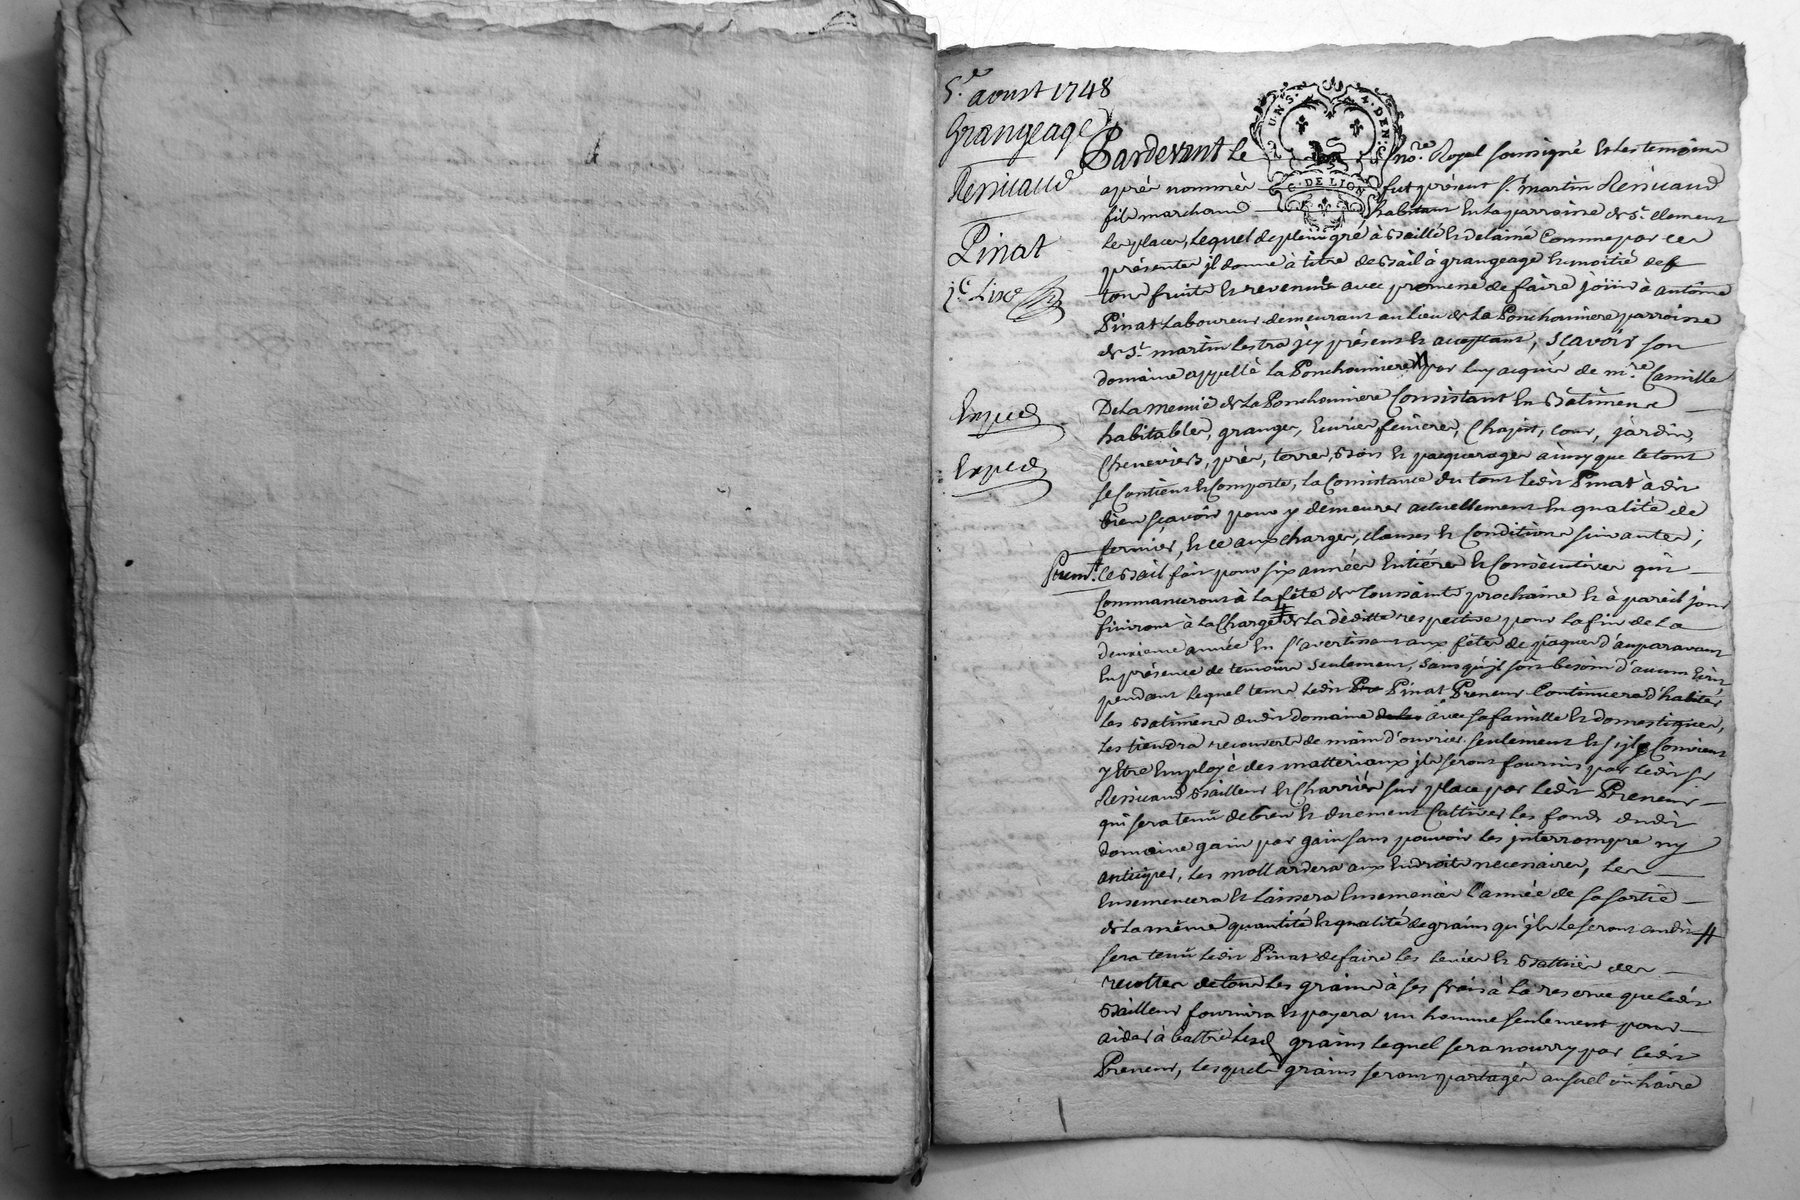 5.e aoust 1748
Grangeage
Renuaud
Pinat
Exped
Exped
UN S. 4. DEN.
G. DE LION
Pardevant le no.re Royal soussigné et les temoins
après nommés fut présent s.r martin Renuaud
fils marchand habitant en la parroisse de S.t Clement
les places, lequel de plein gré à baillé et delaissé comme par ces
présentes jl donne à titre de bail à grangeage et moitié de
tous fruits et revenus avec promesse de faire joüir à antoine
Pinat Laboureur demeurant au lieu de La Ponchonniere parroisse
de S.t martin lestra jcy présent et acceptant, Sçavoir son
domaine appellé la Ponchonniere par luy acquis de m.re Camille
De La menüe de La Ponchonniere Consistant En Batiments
habitables, granges, Ecuries fenieres, Chapit, cour, jardin,
Cheneviers, près, terres, Bois et paquerages ainsy que le tout
se Contient et Comporte, la Consistance du tout ledit Pinat à dit
bien sçavoir pour y demeurer actuellement En qualité de
fermier, et ce aux charges, clauses et Conditions suivantes ;
Prem.t le Bail fait pour six années Entiéres et Consecutives qui
Commanceront à la fête de toussaints prochaine et à pareil jour
finiront à la Charge de la dèditte respective pour la fin de la
deuxieme année En s'avertissant aux fêtes de pâques d'auparavant
En présence de temoins seulement, sans qu'jl soit besoin d'aucun Ecrit
pendant lequel tems ledit Pinat Preneur Continuera d'habiter
Les Batiments dudit domaine avec sa famille et domestiques,
Les tiendra recouverts de main d'ouvrier seulement et s'jl Convient
y Etre Employé des matteriaux jls seront fournis par ledit s.r
Renuaud Bailleur et Charriés sur place par ledit Preneur
qui sera tenû de bien et duement Cultiver Les fonds dudit
domaine gain par gain sans pouvoir les jnterrompre ny
anticiper, les mollardera aux Endroits necessaires, les
Ensemencera et Laissera Ensemencés l'année de sa sortie
de la même quantité et qualité de grains qu'jls le seront
sera tenû ledit Pinat de faire les levées et Battues des
recoltes de tous les grains à ses frais à la reserve que ledit
Bailleur fournira et payera un homme seulement pour
aider à battre lesd. grains lequel sera nourry par ledit
Preneur, lesquels grains seront partagés